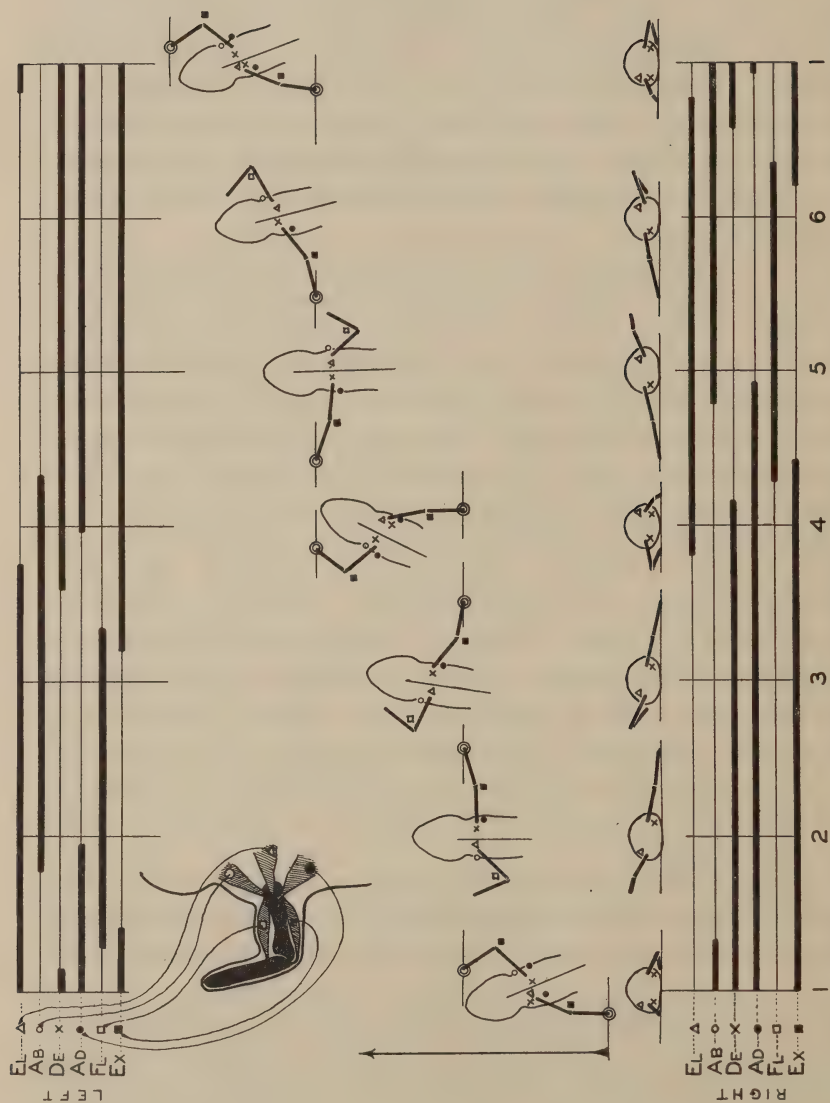 LEFT
EL
AB
DE
AD
FL
EX
RIGHT
EL
AB
DE
AD
FL
EX
1
2
3
4
5
6
1